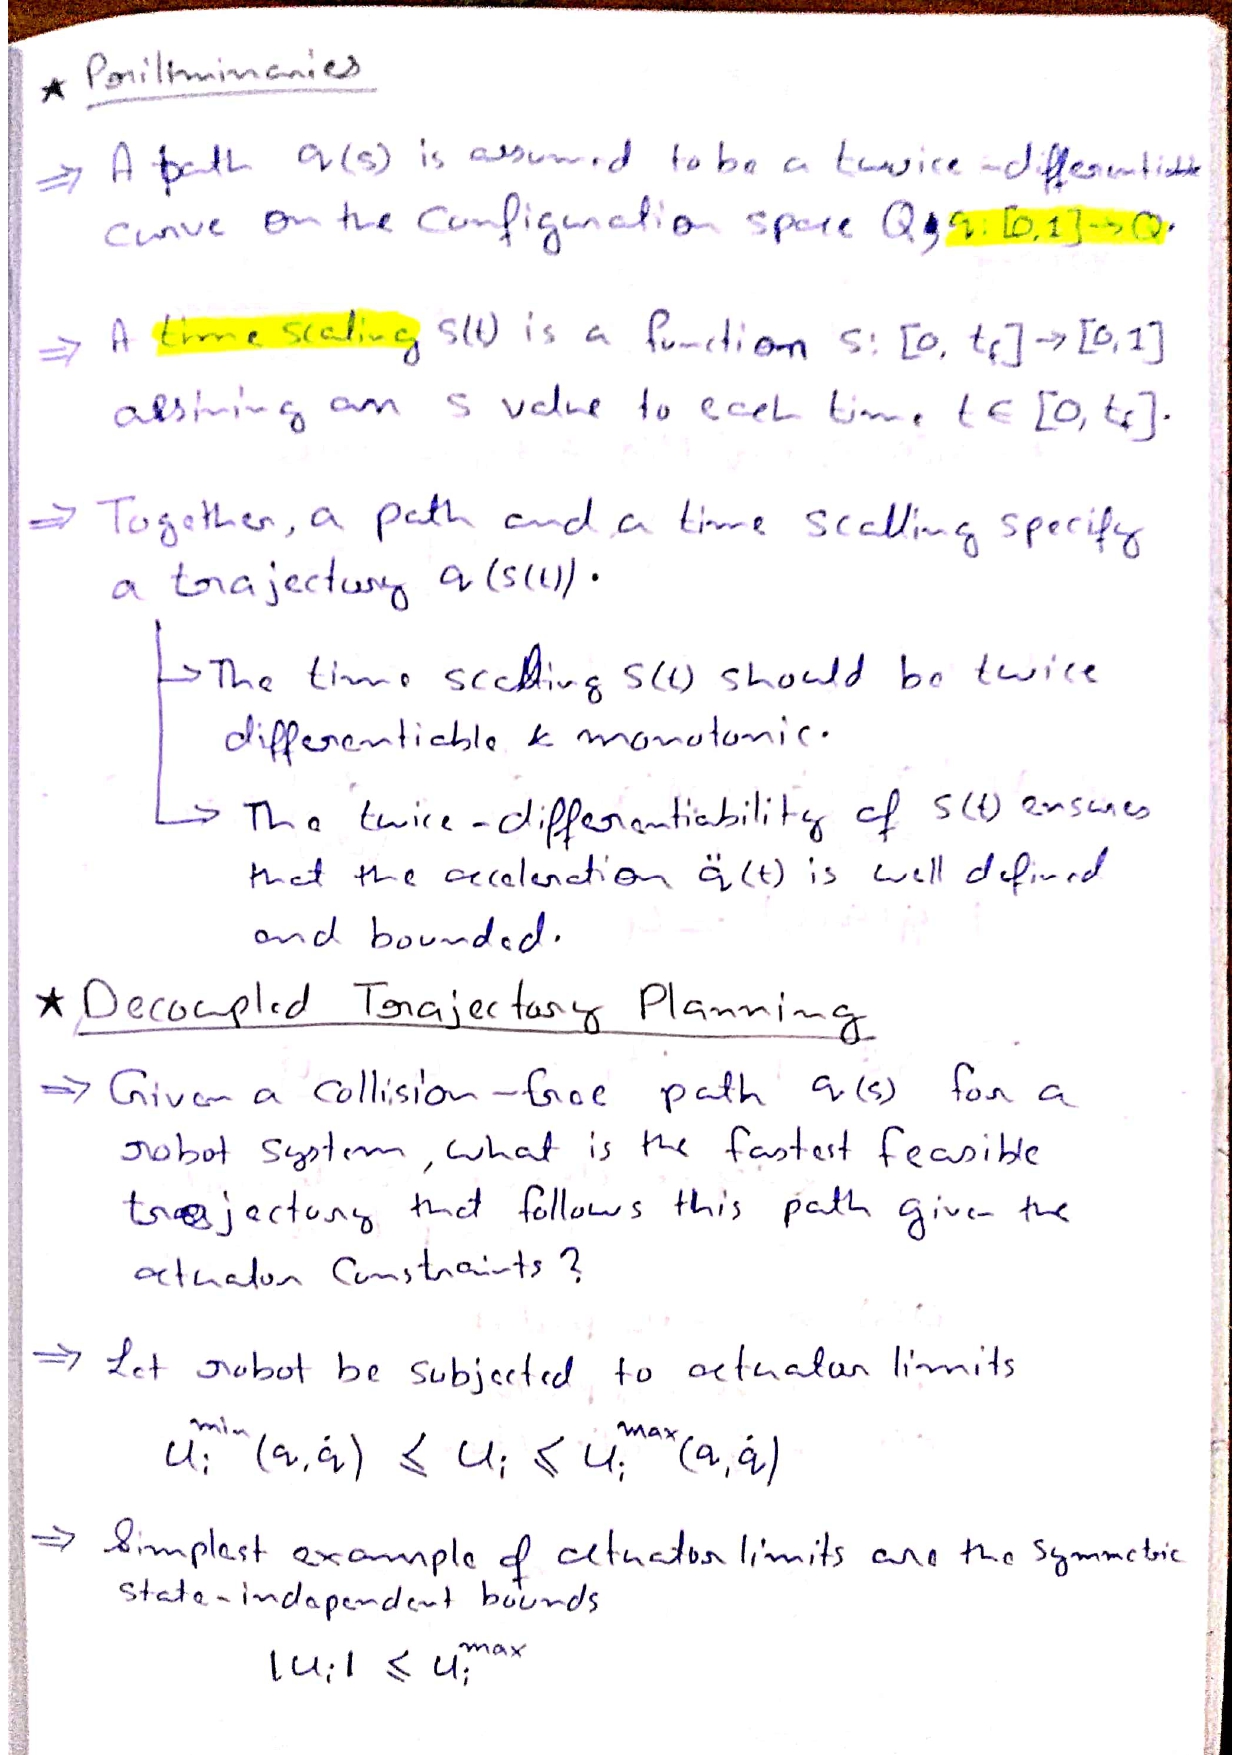 ★ Preliminaries
⇒ A path q(s) is assumed to be a twice-differentiable
curve on the configuration space Q, q: [0,1] → Q.
⇒ A time scaling s(t) is a function s: [0, tf] → [0,1]
assining an s value to each time t ∈ [0, tf].
⇒ Together, a path and a time scalling specify
a trajectory q(s(t)).
→ The time scalling s(t) should be twice
differentiable & monotonic.
→ The twice-differentiability of s(t) ensures
that the acceleration q̈(t) is well defined
and bounded.
★ Decoupled Trajectory Planning
⇒ Given a collision-free path q(s) for a
robot system, what is the fastest feasible
trajectory that follows this path given the
actuator constraints?
⇒ Let robot be subjected to actuator limits
uᵢᵐⁱⁿ(q, q̇) ≤ uᵢ ≤ uᵢᵐᵃˣ(q, q̇)
⇒ Simplest example of actuator limits are the symmetric
state-independent bounds
|uᵢ| ≤ uᵢᵐᵃˣ